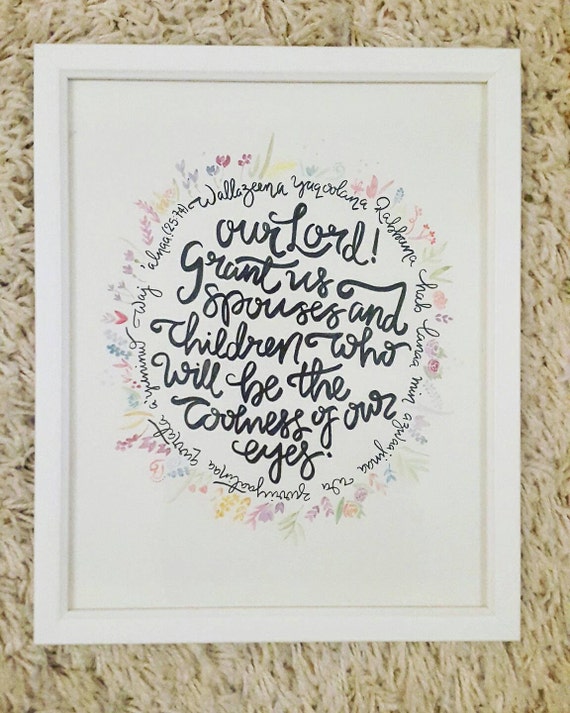 Wallazeena yuqooluna Rabbana hab lanaa min azwaajinaa wa zurriyyaatinaa qurrata a'yuninw waj 'alnaa (25:74)
our Lord!
Grant us
spouses and
children who
will be the
coolness of our
eyes.